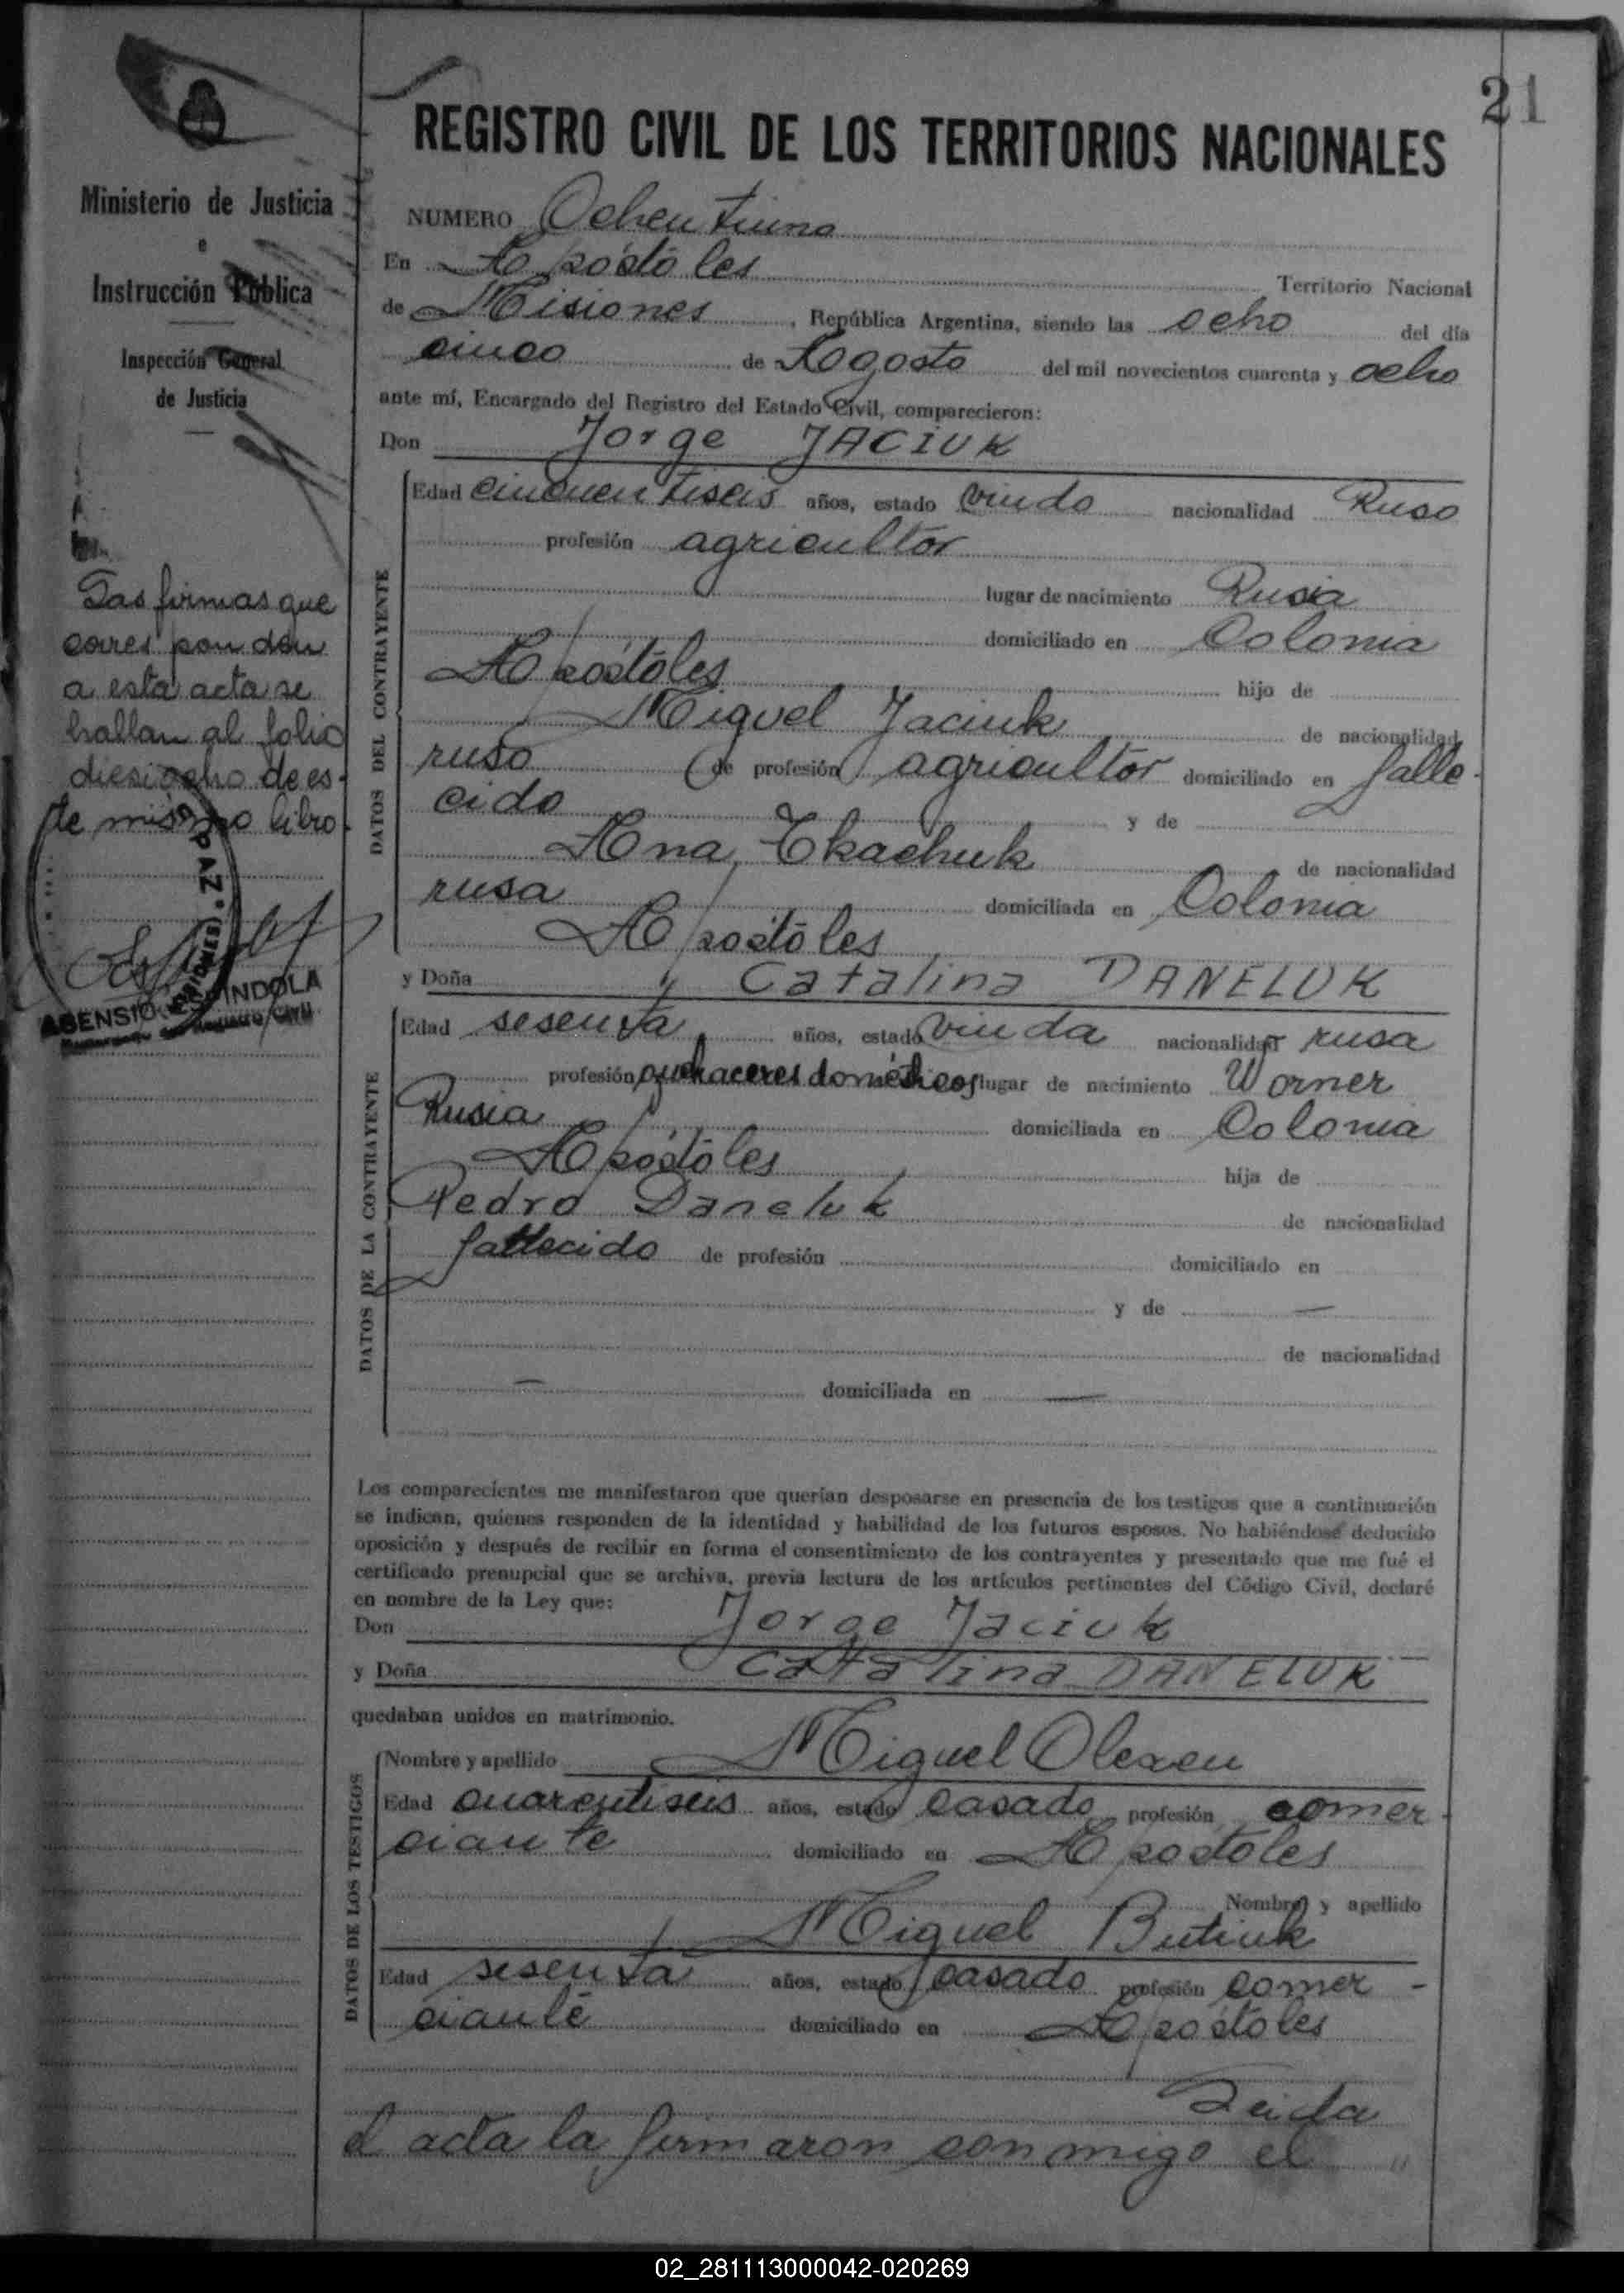 21
REGISTRO CIVIL DE LOS TERRITORIOS NACIONALES
Ministerio de Justicia
e
Instrucción Pública
Inspección General
de Justicia
NUMERO Ochentiuno
En Apóstóles Territorio Nacional
de Misiones, República Argentina, siendo las ocho del día
cinco de Agosto del mil novecientos cuarenta y ocho
ante mí, Encargado del Registro del Estado Civil, comparecieron:
Don Jorge JACIUK
DATOS DEL CONTRAYENTE
Edad cincuentiseis años, estado viudo nacionalidad Ruso
profesión agricultor
lugar de nacimiento Rusia
domiciliado en Colonia
Apóstóles hijo de
Miguel Jaciuk de nacionalidad
ruso (de profesión) agricultor domiciliado en falle-
cido y de
Ana Tkachuk de nacionalidad
rusa domiciliada en Colonia
Apostóles
y Doña Catalina DANELUK
DATOS DE LA CONTRAYENTE
Edad sesenta años, estado viuda nacionalidad rusa
profesión quehaceres domésticos lugar de nacimiento Worner
Rusia domiciliada en Colonia
Apóstóles hija de
Pedro Daneluk de nacionalidad
fallecido de profesión domiciliado en
y de —
de nacionalidad
— domiciliada en —
Los comparecientes me manifestaron que querían desposarse en presencia de los testigos que a continuación
se indican, quienes responden de la identidad y habilidad de los futuros esposos. No habiéndose deducido
oposición y después de recibir en forma el consentimiento de los contrayentes y presentado que me fué el
certificado prenupcial que se archiva, previa lectura de los artículos pertinentes del Código Civil, declaré
en nombre de la Ley que:
Don Jorge Jaciuk
y Doña Catalina DANELUK
quedaban unidos en matrimonio.
DATOS DE LOS TESTIGOS
Nombre y apellido Miguel Olexen
Edad cuarentiseis años, estado casado profesión comer-
ciante domiciliado en Apostoles
Nombre y apellido
Miguel Butiuk
Edad sesenta años, estado casado profesión comer-
ciante domiciliado en Apóstoles
Leida
el acta la firmaron conmigo el
Las firmas que
corres pon den
a esta acta se
hallan al folio
diesiocho de es-
te mismo libro.
PAZ • (MISIONES)
ASENSIO ESPINDOLA
Encargado del Registro Civil
02_281113000042-020269